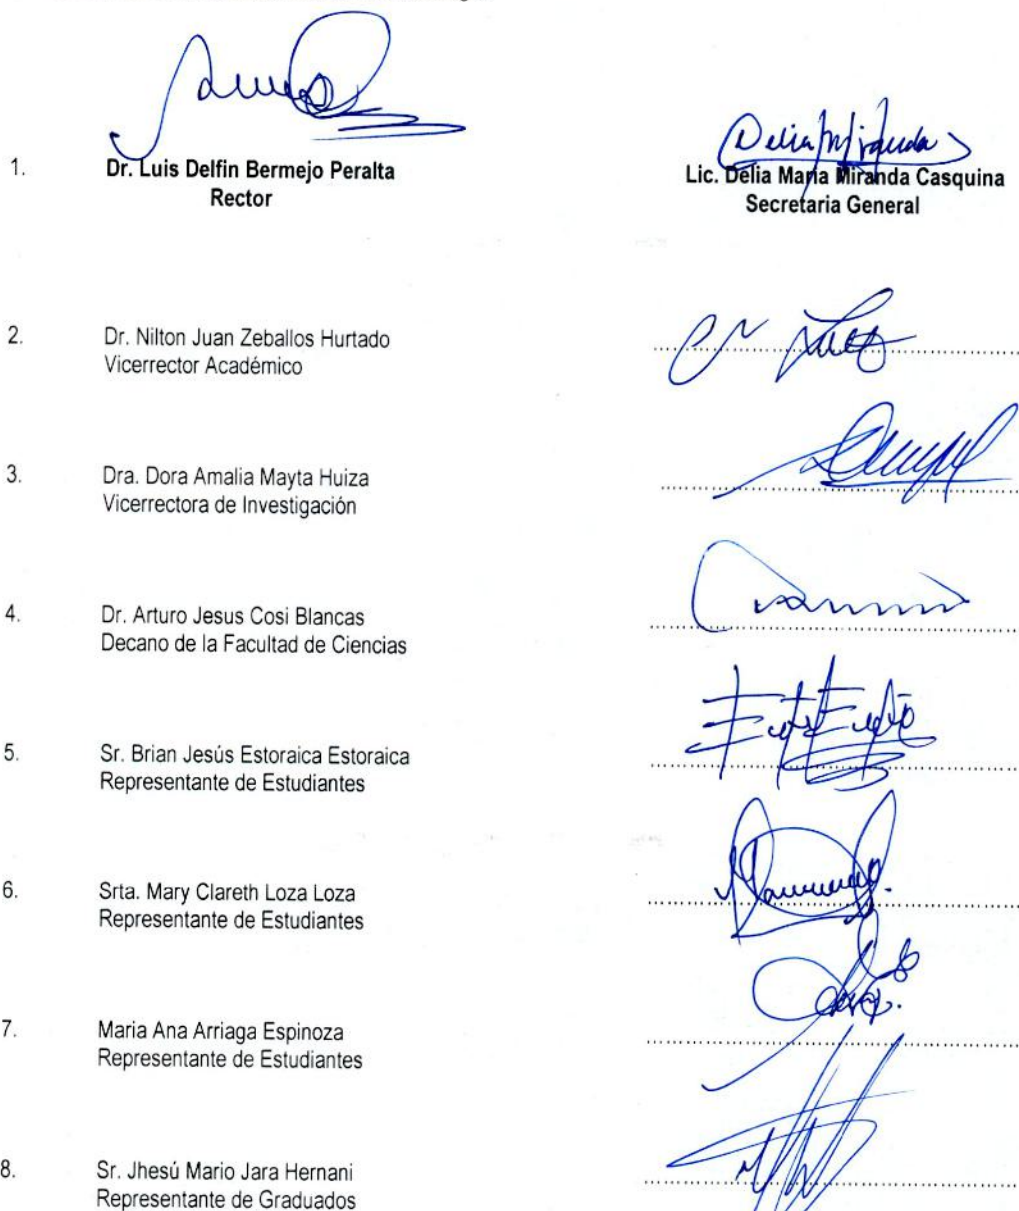 1.
Dr. Luis Delfin Bermejo Peralta
Rector
Delia Miranda
Lic. Delia Maria Miranda Casquina
Secretaria General
2.
Dr. Nilton Juan Zeballos Hurtado
Vicerrector Académico
3.
Dra. Dora Amalia Mayta Huiza
Vicerrectora de Investigación
4.
Dr. Arturo Jesus Cosi Blancas
Decano de la Facultad de Ciencias
5.
Sr. Brian Jesús Estoraica Estoraica
Representante de Estudiantes
6.
Srta. Mary Clareth Loza Loza
Representante de Estudiantes
7.
Maria Ana Arriaga Espinoza
Representante de Estudiantes
8.
Sr. Jhesú Mario Jara Hernani
Representante de Graduados